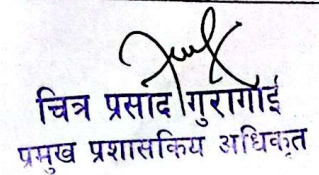 चित्र प्रसाद गुरागाई
प्रमुख प्रशासकिय अधिकृत